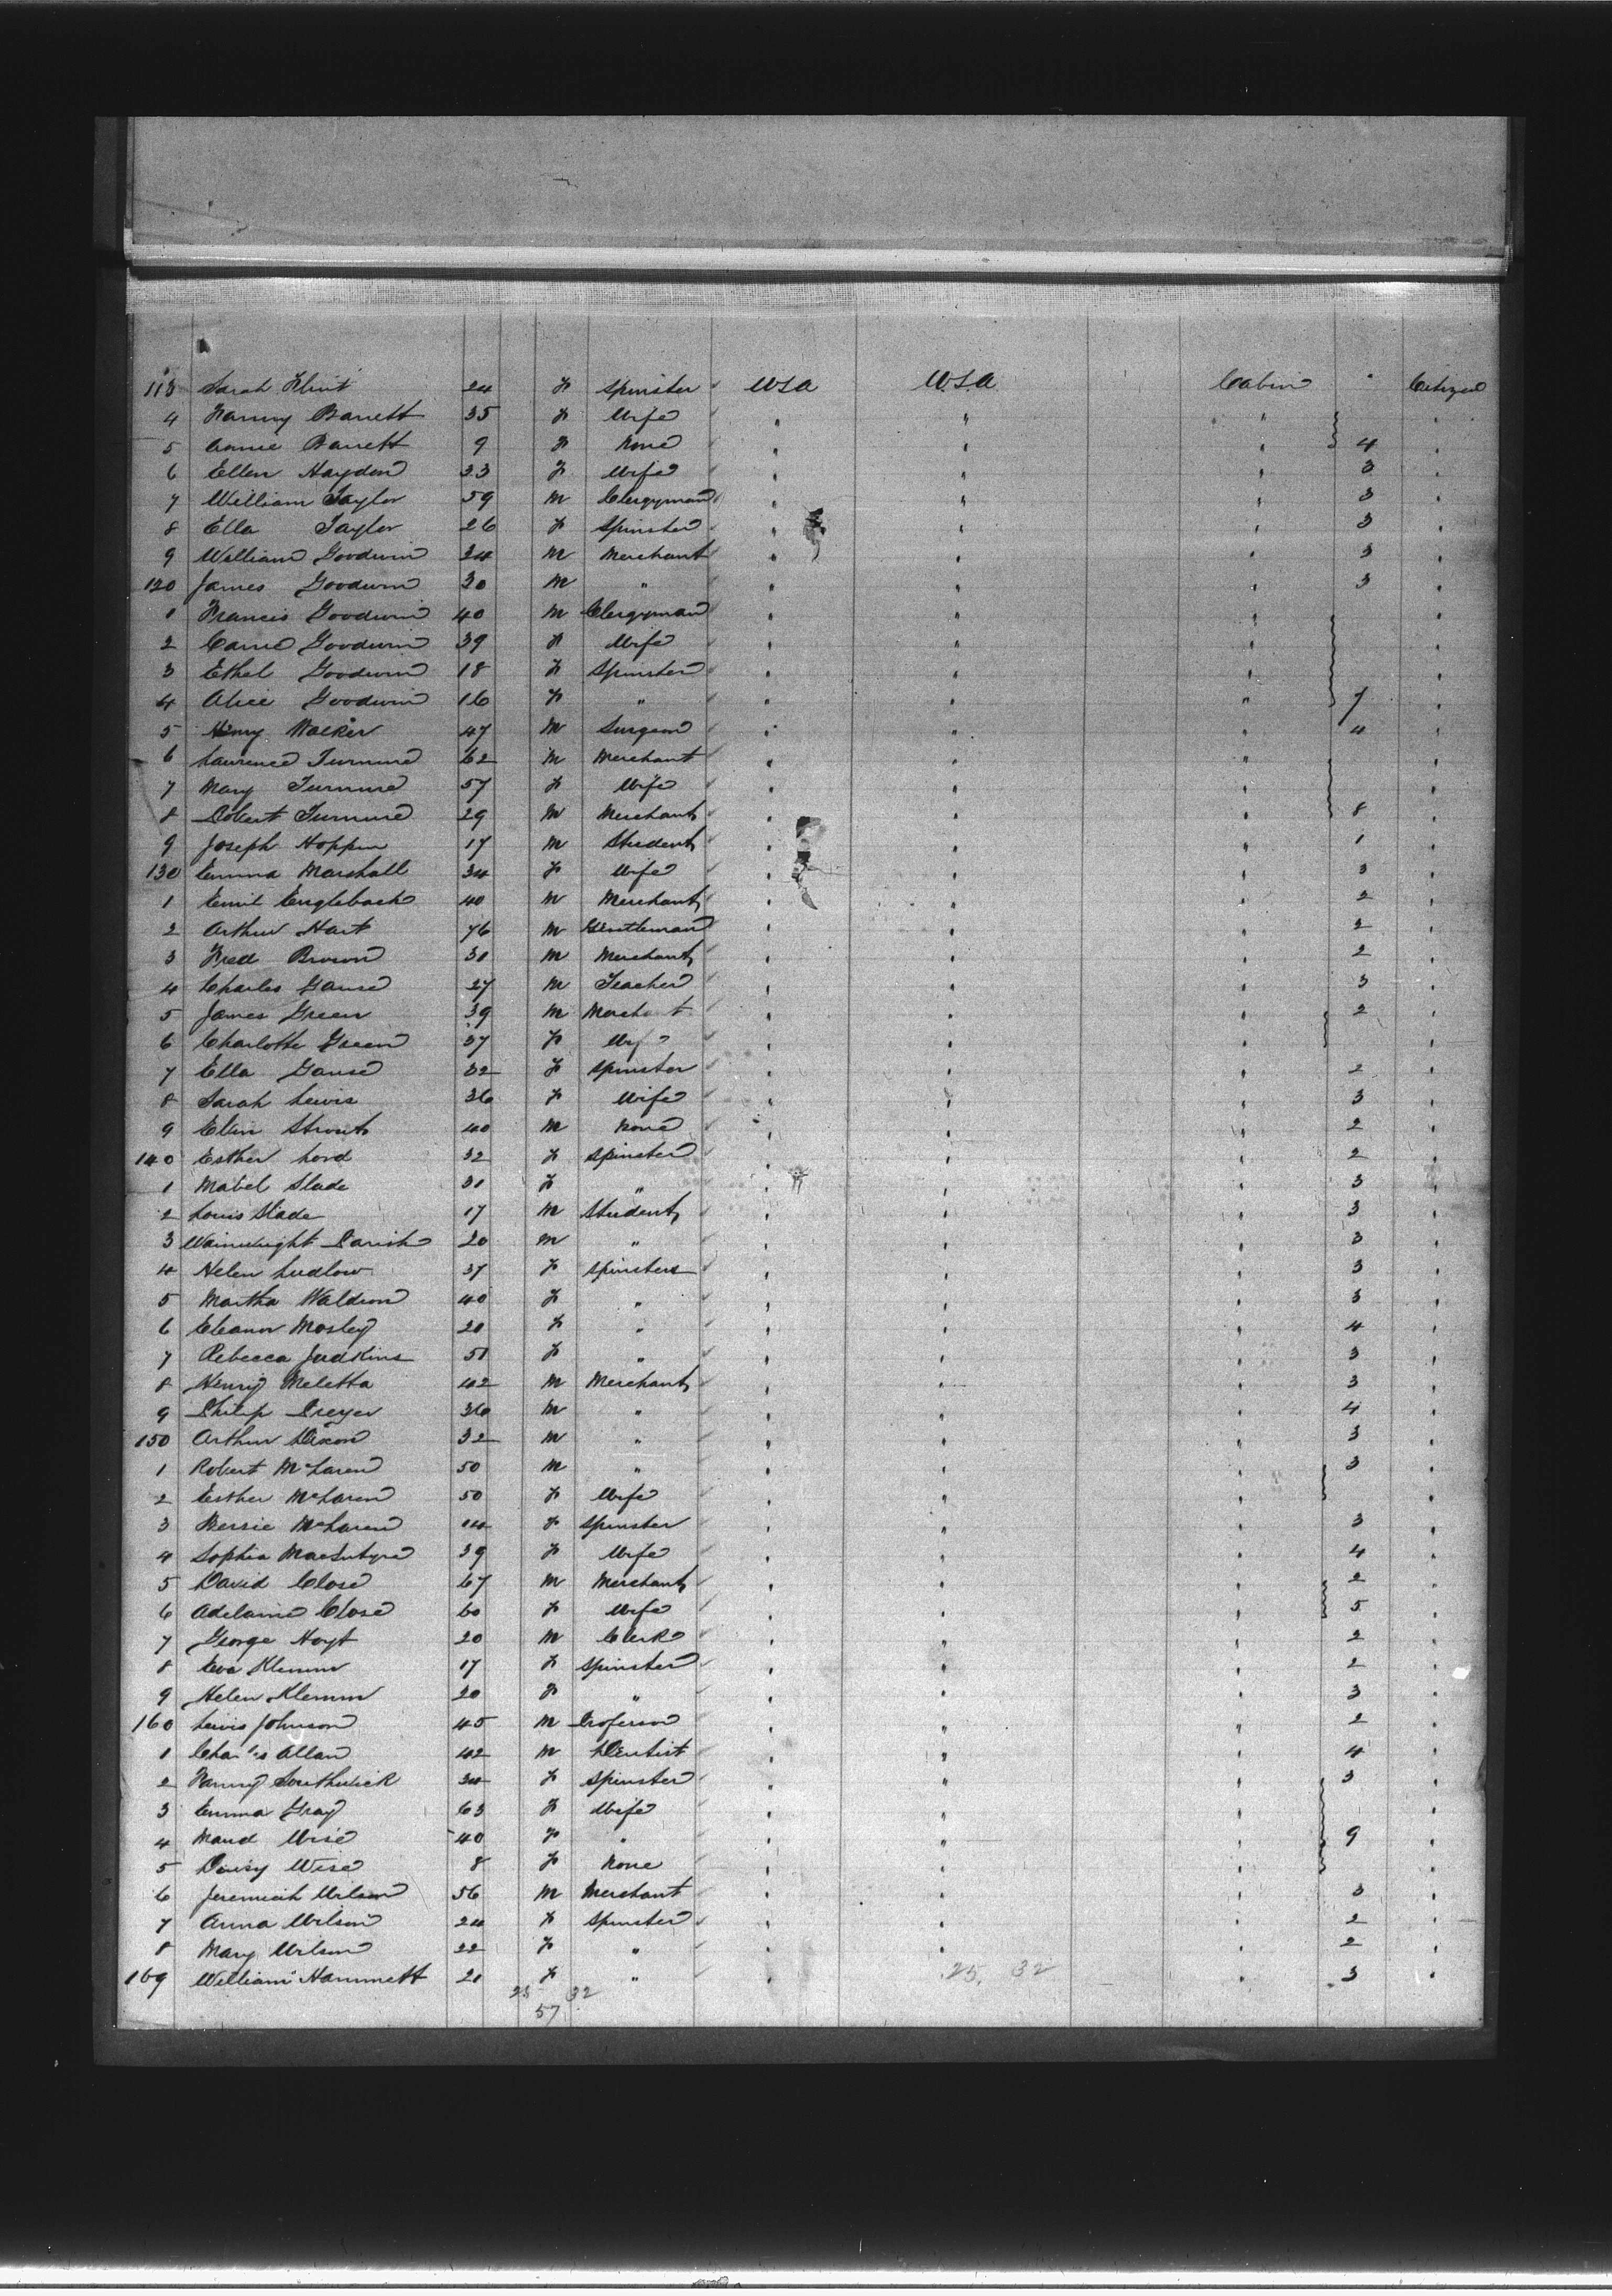 113 Sarah Flint 24 F Spinster USA USA Cabin " Citizen
4 Fanny Barrett 35 F Wife " " " "
5 Annie Barrett 9 F None " " " 4 "
6 Ellen Haydon 33 F Wife " " " 3 "
7 William Taylor 59 M Clergyman " " " 3 "
8 Ella Taylor 26 F Spinster " " " 3 "
9 William Goodwin 34 M Merchant " " " 3 "
120 James Goodwin 30 M " " " " 3 "
1 Francis Goodwin 40 M Clergyman " " " "
2 Carrie Goodwin 39 F Wife " " " "
3 Ethel Goodwin 18 F Spinster " " " "
4 Alice Goodwin 16 F " " " " 7 "
5 Henry Walker 47 M Surgeon " " " 4 "
6 Laurence Turnure 62 M Merchant " " " "
7 Mary Turnure 57 F Wife " " " "
8 Robert Turnure 29 M Merchant " " " 8 "
9 Joseph Hoppin 17 M Student " " " 1 "
130 Emma Marshall 34 F Wife " " " 3 "
1 Emil Engleback 40 M Merchant " " " 2 "
2 Arthur Hart 76 M Gentleman " " " 2 "
3 Fred Brown 31 M Merchant " " " 2 "
4 Charles Gause 27 M Teacher " " " 3 "
5 James Green 39 M Merchant " " " 2 "
6 Charlotte Green 37 F Wife " " " "
7 Ella Gause 32 F Spinster " " " 2 "
8 Sarah Lewis 36 F Wife " " " 3 "
9 Elim Strout 40 M None " " " 2 "
140 Esther Lord 32 F Spinster " " " 2 "
1 Mabel Slade 31 F " " " " 3 "
2 Louis Slade 17 M Student " " " 3 "
3 Wainwright Parish 20 M " " " " 3 "
4 Helen Ludlow 37 F Spinster " " " 3 "
5 Martha Waldron 40 F " " " " 3 "
6 Eleanor Mosley 20 F " " " " 4 "
7 Rebecca Judkins 51 F " " " " 3 "
8 Henry Meletta 42 M Merchant " " " 3 "
9 Philip Dreyer 36 M " " " " 4 "
150 Arthur Dixon 32 M " " " " 3 "
1 Robert McLaren 50 M " " " " 3 "
2 Esther McLaren 50 F Wife " " " "
3 Bessie McLaren 14 F Spinster " " " 3 "
4 Sophia MacIntyre 39 F Wife " " " 4 "
5 David Close 67 M Merchant " " " 2 "
6 Adelaine Close 60 F Wife " " " 5 "
7 George Hoyt 20 M Clerk " " " 2 "
8 Eva Klemm 17 F Spinster " " " 2 "
9 Helen Klemm 20 F " " " " 3 "
160 Lewis Johnson 45 M Professor " " " 2 "
1 Charles Allan 42 M Dentist " " " 4 "
2 Fanny Southwick 34 F Spinster " " " 3 "
3 Emma Gray 63 F Wife " " " "
4 Maud Wise 40 F " " " " 9 "
5 Daisy Wise 8 F None " " " "
6 Jeremiah Wilson 56 M Merchant " " " 3 "
7 Anna Wilson 24 F Spinster " " " 2 "
8 Mary Wilson 22 F " " " " 2 "
169 William Hammett 21 F " " 25. 32 " 3 "
25 32
57